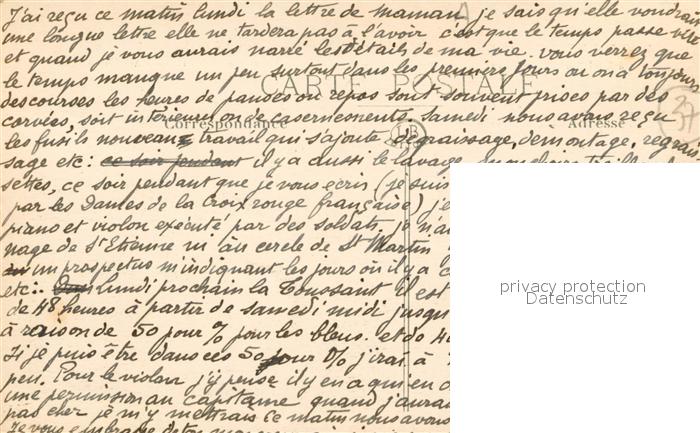 J'ai reçu ce matin lundi la lettre de maman, je sais qu'elle voudrait
une longue lettre elle ne tardera pas à l'avoir c'est que le temps passe vite
et quand je vous aurais narré les détails de ma vie. vous verrez que
le temps manque un peu surtout dans les premiers jours ou on a toujours
CARTE POSTALE
des courses les heures de pauses ou repos sont souvent prises par des
corvées, soit intérieur ou de casernements. Samedi nous avons reçu
Correspondance
Adresse
les fusils nouveau travail qui s'ajoute dégraissage, démontage, regrais
sage etc: ce soir pendant il y a aussi le lavage
settes, ce soir pendant que je vous écris (je suis
par les Dames de la Croix rouge française) j'e
piano et violon exécuté par des soldats. je n'ai
nage de St Etienne ni au cercle de St Martin
un prospectus m'indiquant les jours où il y a
etc:. lundi prochain la Toussaint il est
de 48 heures à partir de samedi midi jusqu
à raison de 50 pour % pour les bleus. et de 40
Si je puis être dans ces 50 pour % j'irai à
peu. Pour le violon j'y pense il y en a qui en o
une permission au capitaine quand j'aurai
pas cher je m'y mettrais Ce matin nous avons
Je vous embrasse
privacy protection
Datenschutz